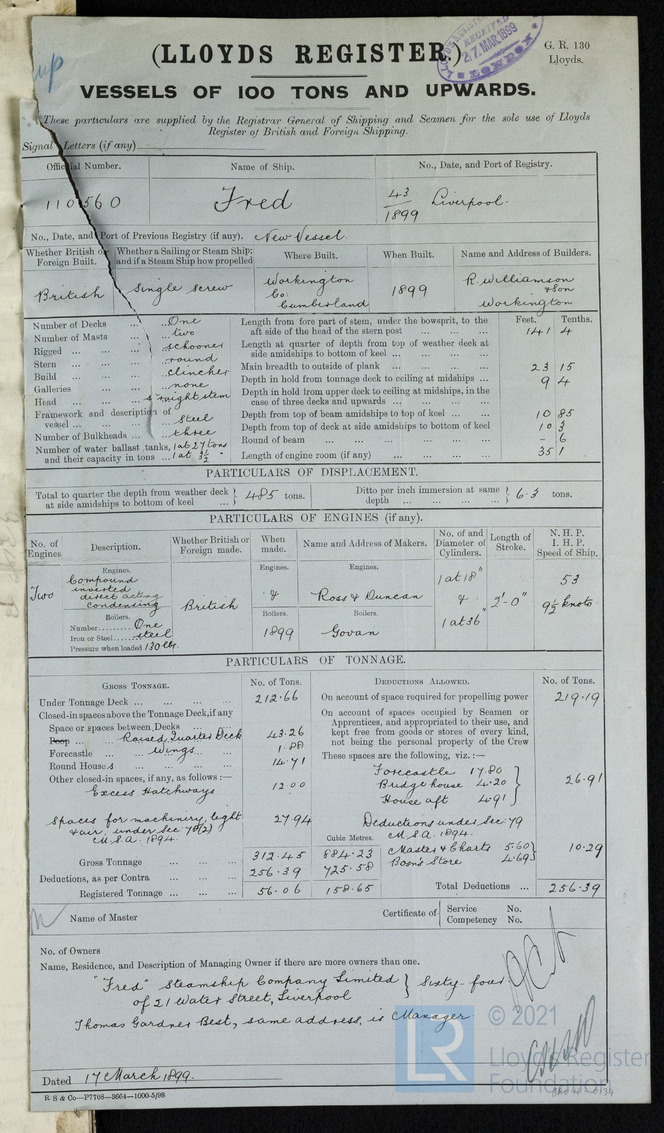 up
(LLOYDS REGISTER.)
RECEIVED
27.MAR.1899
G. R. 130
Lloyds.
VESSELS OF 100 TONS AND UPWARDS.
These particulars are supplied by the Registrar General of Shipping and Seamen for the sole use of Lloyds
Register of British and Foreign Shipping.
Signal Letters (if any)
Official Number. Name of Ship. No., Date, and Port of Registry.
110560 Fred 43/1899 Liverpool
No., Date, and Port of Previous Registry (if any). New Vessel
Whether British or Foreign Built. Whether a Sailing or Steam Ship; and if a Steam Ship how propelled Where Built. When Built. Name and Address of Builders.
British Single Screw Workington Co: Cumberland 1899 R. Williamson & Son Workington
Number of Decks ... One
Number of Masts ... two
Rigged ... schooner
Stern ... round
Build ... clincher
Galleries ... none
Head ... straight stem
Framework and description of vessel ... steel
Number of Bulkheads ... three
Number of water ballast tanks, and their capacity in tons ... 1 at 27 tons 1 at 3½ "
Feet. Tenths.
Length from fore part of stem, under the bowsprit, to the aft side of the head of the stern post ... 141 4
Length at quarter of depth from top of weather deck at side amidships to bottom of keel ...
Main breadth to outside of plank ... 23 15
Depth in hold from tonnage deck to ceiling at midships ... 9 4
Depth in hold from upper deck to ceiling at midships, in the case of three decks and upwards ...
Depth from top of beam amidships to top of keel ... 10 85
Depth from top of deck at side amidships to bottom of keel 10 3
Round of beam ... - 6
Length of engine room (if any) ... 35 1
PARTICULARS OF DISPLACEMENT.
Total to quarter the depth from weather deck at side amidships to bottom of keel ... } 485 tons. Ditto per inch immersion at same depth ... } 6.3 tons.
PARTICULARS OF ENGINES (if any).
No. of Engines Description. Whether British or Foreign made. When made. Name and Address of Makers. No. of and Diameter of Cylinders. Length of Stroke. N. H. P. I. H. P. Speed of Ship.
Engines. Engines. Engines.
Two Compound inverted direct acting condensing British & Ross & Duncan 1 at 18" & 1 at 36" 2'-0" 53 9½ knots
Boilers. Boilers. Boilers.
Number One
Iron or Steel steel 1899 Govan
Pressure when loaded 130 lbs.
PARTICULARS OF TONNAGE.
GROSS TONNAGE. No. of Tons.
Under Tonnage Deck ... 212.66
Closed-in spaces above the Tonnage Deck, if any
Space or spaces between Decks ...
Poop ... Raised Quarter Deck 43.26
Forecastle ... Wings 1.88
Round Houses ... 14.71
Other closed-in spaces, if any, as follows :—
Excess Hatchways 12.00
Spaces for machinery, light & air, under Sec. 78(2) M.S.A. 1894. 27.94
Cubic Metres.
Gross Tonnage ... 312.45 884.23
Deductions, as per Contra ... 256.39 725.58
Registered Tonnage ... 56.06 158.65
DEDUCTIONS ALLOWED. No. of Tons.
On account of space required for propelling power 219.19
On account of spaces occupied by Seamen or
Apprentices, and appropriated to their use, and
kept free from goods or stores of every kind,
not being the personal property of the Crew
These spaces are the following, viz. :—
Forecastle 17.80
Bridge house 4.20 } 26.91
House aft 4.91
Deductions under Sec. 79
M.S.A. 1894.
Master & Charts 5.60 } 10.29
Bosn's Store 4.69
Total Deductions ... 256.39
Name of Master Certificate of Service No. Competency No.
No. of Owners
Name, Residence, and Description of Managing Owner if there are more owners than one.
"Fred" Steamship Company Limited } Sixty-four
of 21 Water Street, Liverpool
Thomas Gardner Best, same address, is Manager
© 2021
LR
Lloyd's Register
Foundation
Dated 17 March 1899.
R S & Co—P7708—3664—1000-5/98